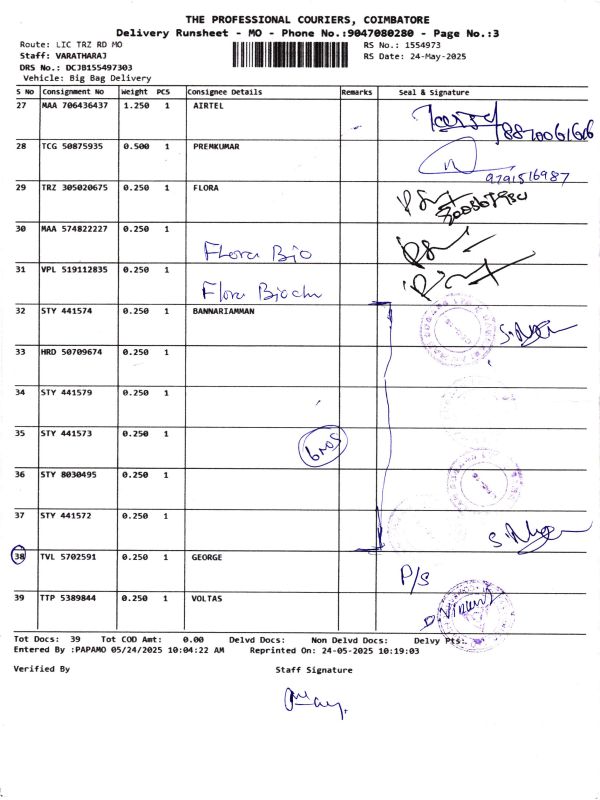 THE PROFESSIONAL COURIERS, COIMBATORE
Delivery Runsheet - MO - Phone No.:9047080280 - Page No.:3
Route: LIC TRZ RD MO RS No.: 1554973
Staff: VARATHARAJ RS Date: 24-May-2025
DRS No.: DCJB155497303
Vehicle: Big Bag Delivery
S No Consignment No Weight PCS Consignee Details Remarks Seal & Signature
27 MAA 706436437 1.250 1 AIRTEL
8870061606
28 TCG 50875935 0.500 1 PREMKUMAR
9791516987
29 TRZ 305020675 0.250 1 FLORA
30 MAA 574822227 0.250 1
Flora Bio
31 VPL 519112835 0.250 1
Flora Biochu
32 STY 441574 0.250 1 BANNARIAMMAN
33 HRD 50709674 0.250 1
34 STY 441579 0.250 1
35 STY 441573 0.250 1
36 STY 8030495 0.250 1
37 STY 441572 0.250 1
38 TVL 5702591 0.250 1 GEORGE
P/S
39 TTP 5389844 0.250 1 VOLTAS
Tot Docs: 39 Tot COD Amt: 0.00 Delvd Docs: Non Delvd Docs: Delvy Pts:
Entered By :PAPAMO 05/24/2025 10:04:22 AM Reprinted On: 24-05-2025 10:19:03
Verified By Staff Signature